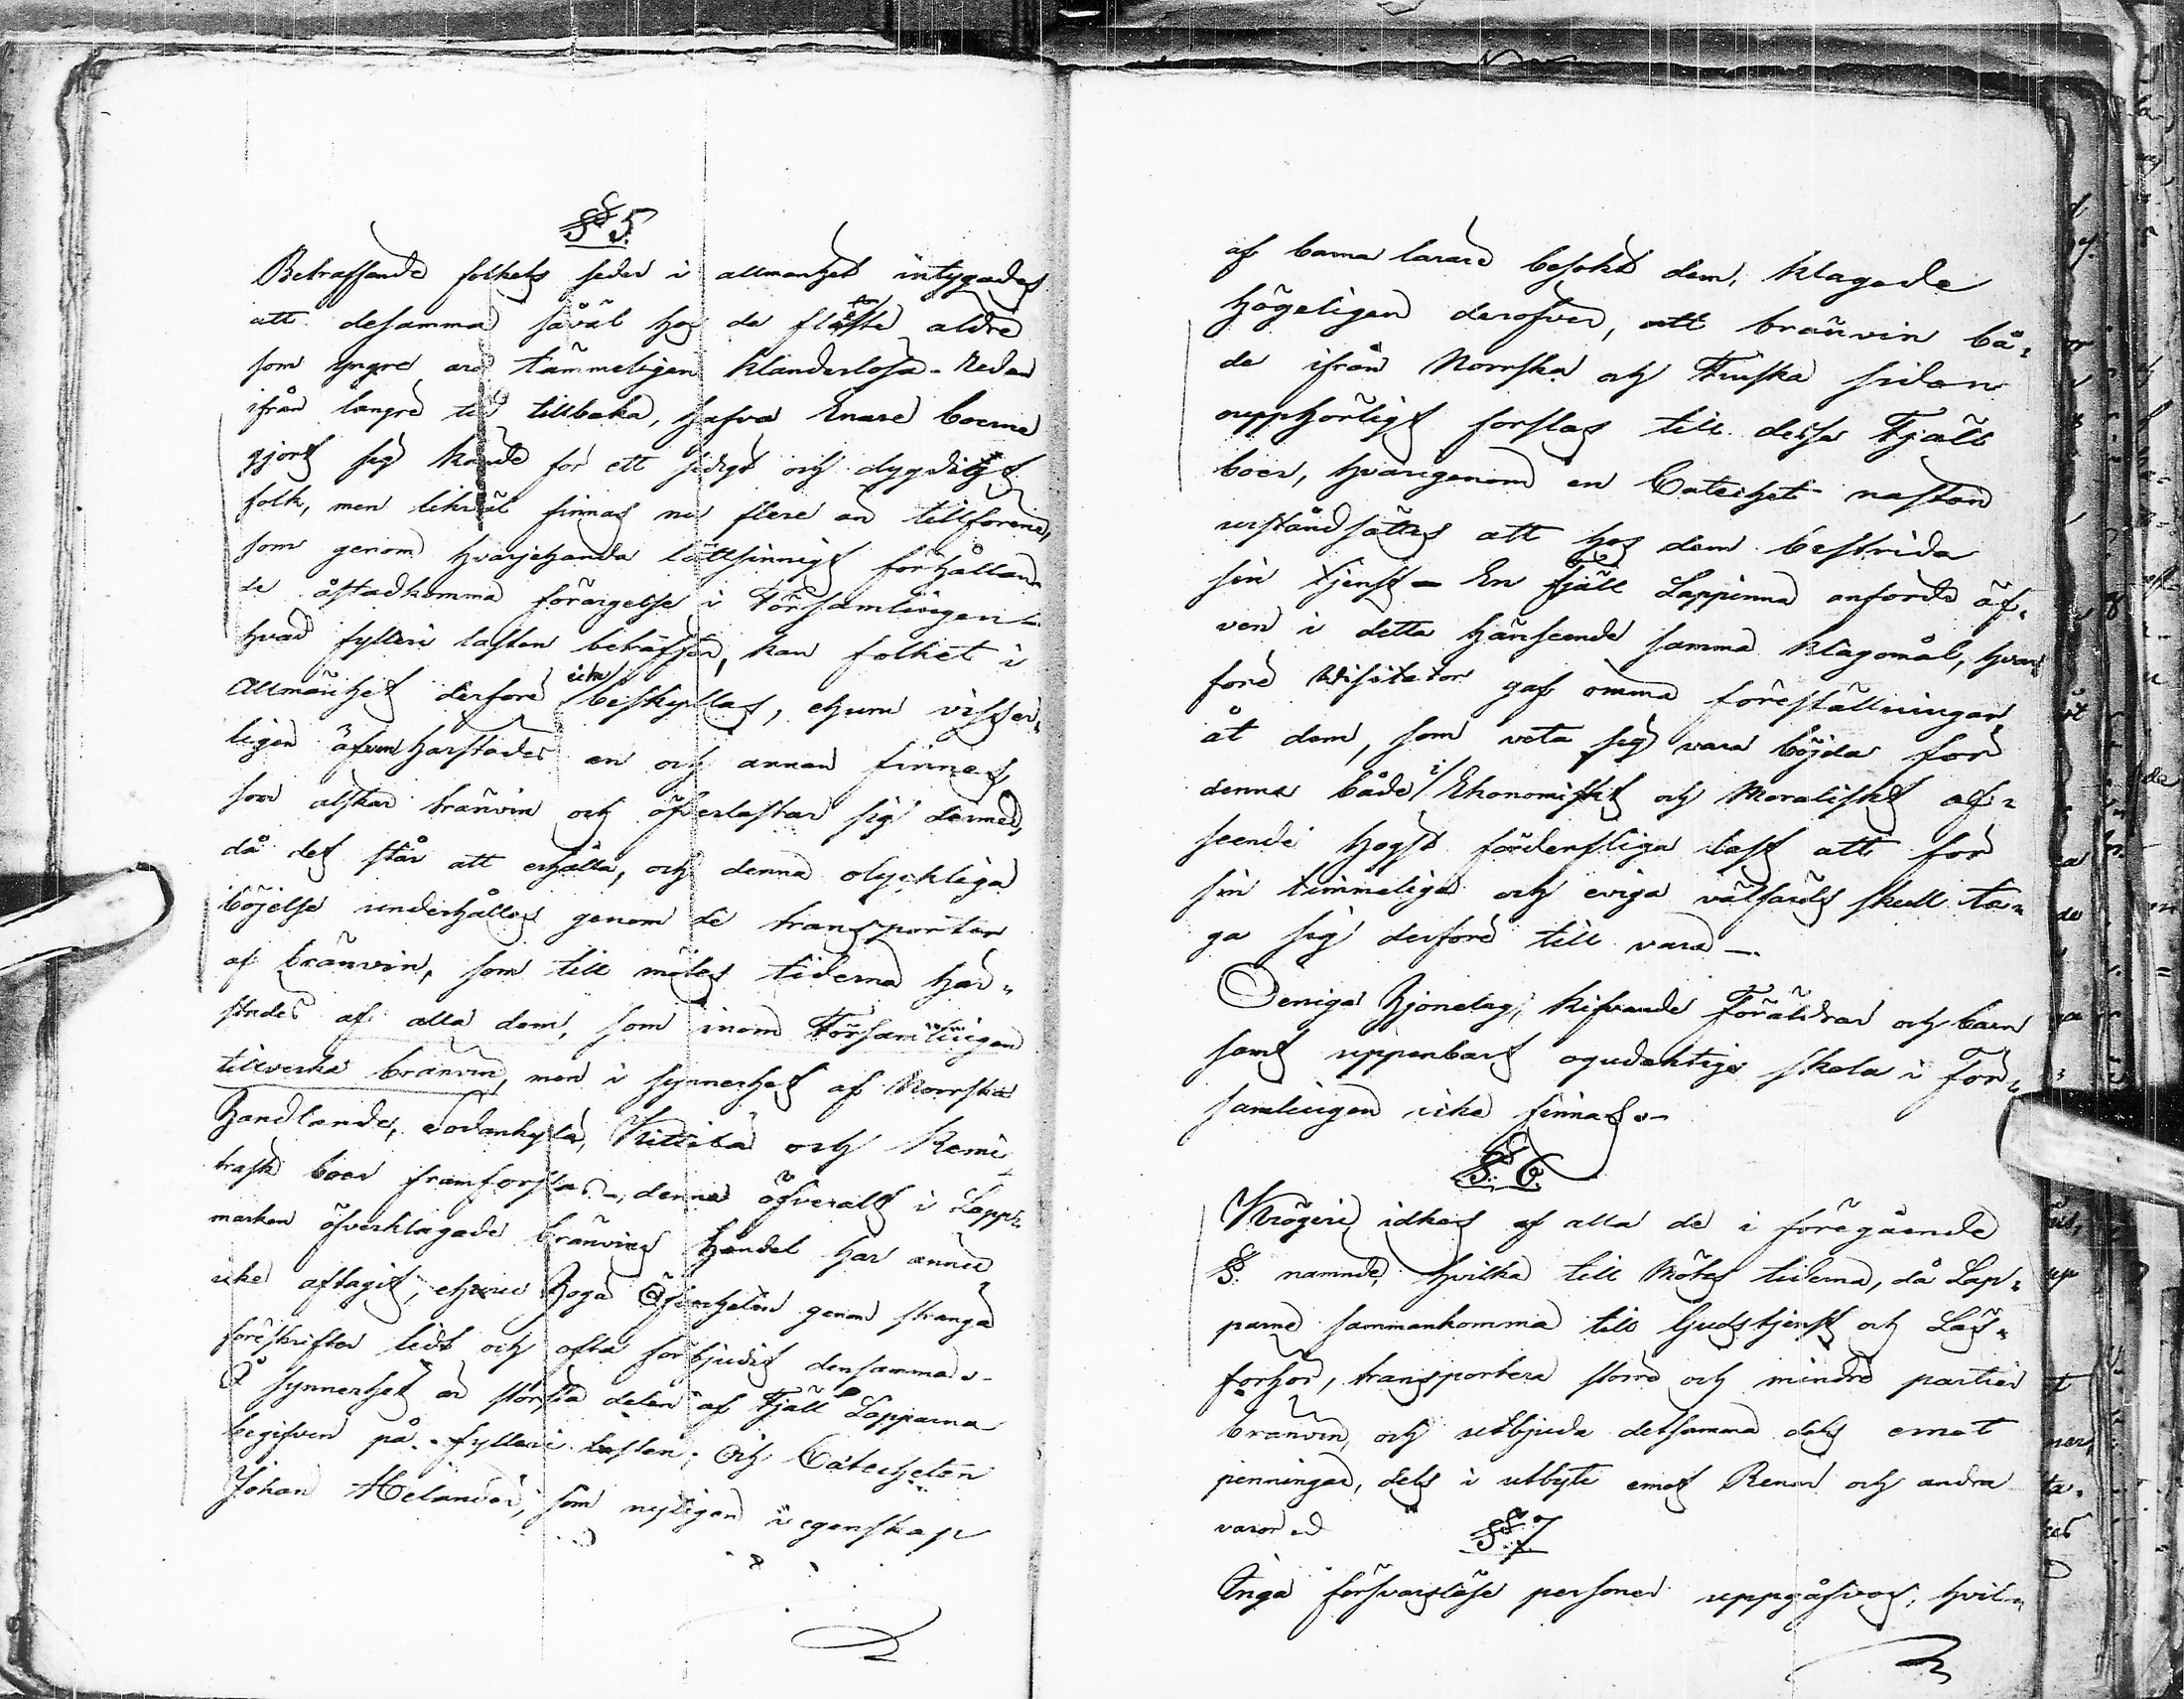 § 5.
Beträffande folkets seder i allmänhet intygades
att desamma såväl hos de fläste äldre
som yngre äro tämmeligen klanderlösa - Redan
ifrån längre tid tillbaka, hafva Enare boerne
gjort sig kände för ett sedigt och dygdigt
folk, men likväl finnas nu flere än tillförene,
som genom hvarjehanda lättsinnigt förhållan-
de åstadkomma förargelse i Församlingen -
hvad fylleri lasten beträffar, kan folket i
Allmänhet derföre icke beskyllas, ehuru visser-
ligen äfven härstädes en och annan finnes,
som älskar bränvin och öfverlastar sig dermed,
då det står att erhålla, och denna olyckliga
böjelse underhålles genom de transporter
af bränvin, som till mötes tiderna här-
städes af alla dem, som inom Församlingen
tillverka bränvin, men i synnerhet af Norrska
Handlande, Sodankylä, Kittilä och Kemi
träsk boer framforslas -, denna öfverallt i Lapp-
marken öfverklagade bränvins handel har ännu
icke aftagit, ehuru Höga Öfverheten genom stränga
föreskrifter tidt och ofta förbjudit densamma. -
I synnerhet är största delen af Fjäll Lapparna
begifven på fylleri lasten; Och Catecheten
Johan Helander, som nyligen i egenskap
af barna lärare besökt dem, klagade
högeligen deröfver, att bränvin bå-
de ifrån Norrska och Finska sidan
oupphörligt forslas till dessa Fjäll
boer, hvarigenom en Catechet nästan
urståndsättes att hos dem bestrida
sin tjenst - En fjäll Lappinna anförde äf-
ven i detta hänseende samma klagomål, hvar-
före Visitator gaf ömma föreställningar
åt dem, som veta sig vara böjda för
denna både i Ekonomiskt och Moraliskt af-
seende högst förderfliga last att för
sin timmeliga och eviga välfärds skull ta-
ga sig derföre till vara -.
Oeniga Hjonelag, kifvande Föräldrar och barn
samt uppenbart ogudaktige skola i För-
samlingen icke finnas. -
§ 6.
Krögeri idkas af alla de i föregående
§. nämnde, hvilka till Mötes tiderna, då Lap-
parne sammankomma till Gudstjenst och Läs-
förhör, transportera större och mindre partier
bränvin, och utbjuda detsamma dels emot
penningar, dels i utbyte emot Renar och andra
varor
§ 7
Inga försvarslöse personer uppgåfvos, hvil-